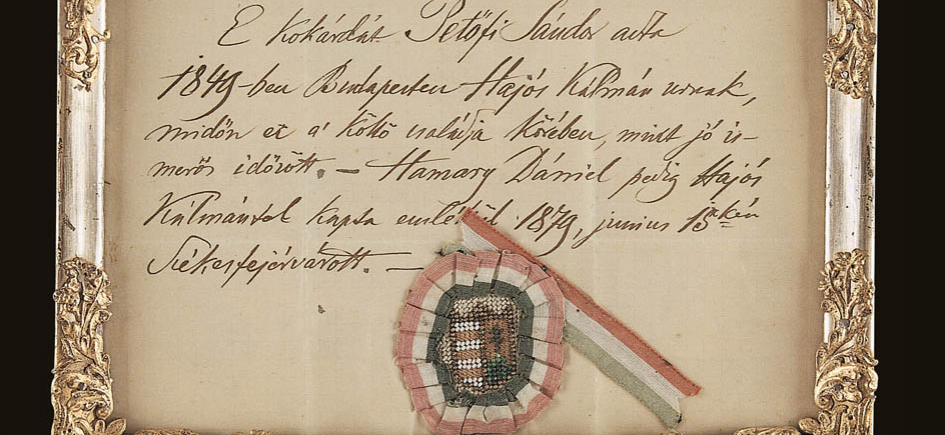 E kokárdát Petőfi Sándor adta
1849-ben Budapesten Hajós Kálmán urnak,
midőn ez a' költő családja körében, mint jó is-
merős időzött. — Hamary Dániel pedig Hajós
Kálmántól kapta emlékül 1879, junius 15kén
Székesfejérvárott. —